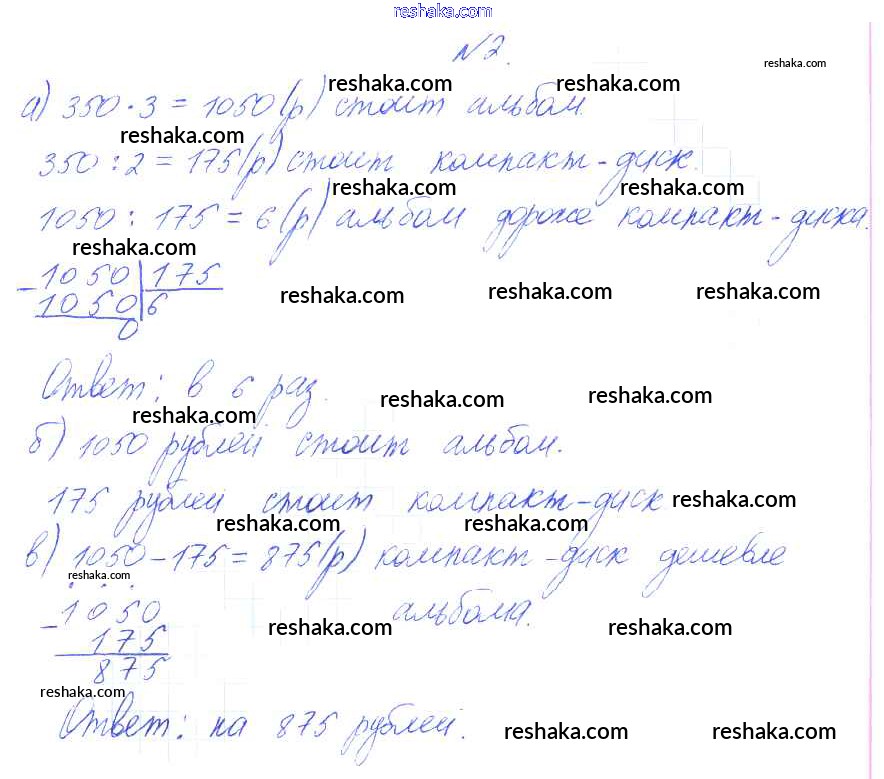 reshaka.com
№2.
reshaka.com
reshaka.com reshaka.com
а) 350 · 3 = 1050 (р) стоит альбом.
reshaka.com
350 : 2 = 175 (р) стоит компакт-диск.
reshaka.com reshaka.com
1050 : 175 = 6 (р) альбом дороже компакт-диска.
reshaka.com
-1050|175
1050|6
0
reshaka.com reshaka.com reshaka.com
Ответ: в 6 раз.
reshaka.com reshaka.com reshaka.com
б) 1050 рублей стоит альбом.
175 рублей стоит компакт-диск reshaka.com
reshaka.com reshaka.com
в) 1050 - 175 = 875 (р) компакт-диск дешевле
reshaka.com
альбома.
-1050
175
875
reshaka.com reshaka.com
reshaka.com
Ответ: на 875 рублей.
reshaka.com reshaka.com